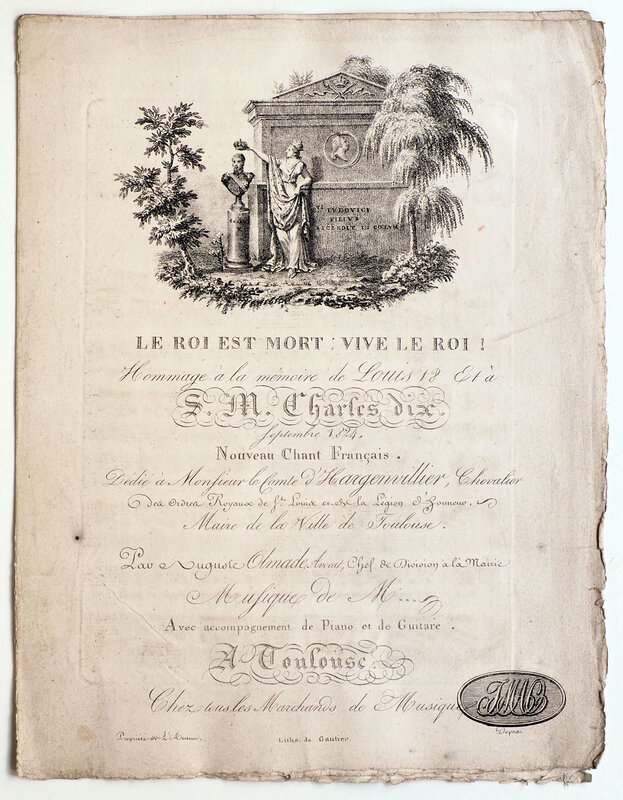 LUDOVICI
PIEIUS
ASCENDIT IN COELUM
LE ROI EST MORT : VIVE LE ROI !
Hommage à la mémoire de Louis 18 Et à
S. M. Charles dix.
Septembre 1824.
Nouveau Chant Français .
Dédié à Monsieur le Comte d'Hargenvillier, Chevalier
des Ordres Royaux de St. Louis et de la Légion d'Honneur.
Maire de la Ville de Toulouse.
Par Auguste Olmade, Avocat, Chef de Division à la Mairie
Musique de M....
Avec accompagnement de Piano et de Guitare .
A Toulouse
Chez tous les Marchands de Musique
JMB
Propriété de l'Auteur.
Litho. de Gautier.
Déposé